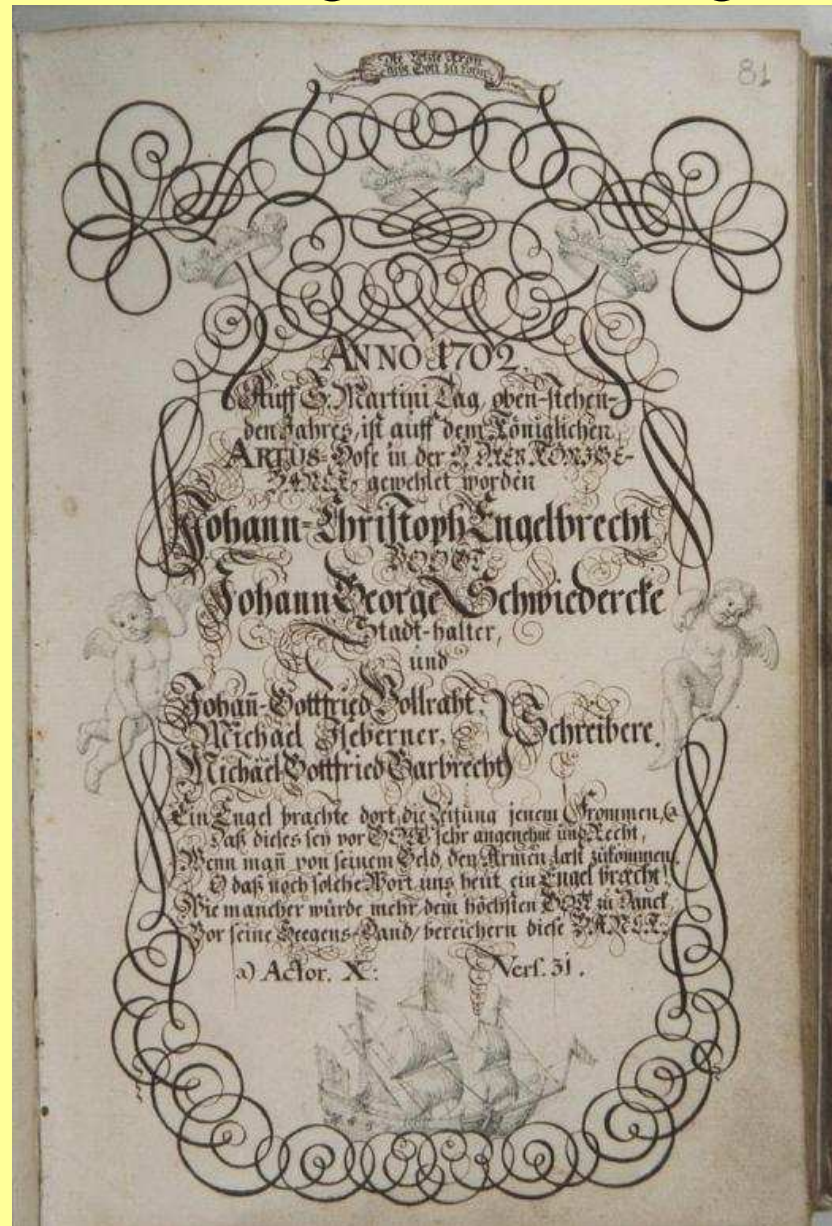 81
Die letzte Kron
ANNO 1702.
Auff S. Martini Tag, oben-stehen-
den Jahres, ist auff dem Königlichen
ARTUS-Hofe in der
BANCK, gewehlet worden
Johann-Christoph Engelbrecht
VOGT
Johann George Schwiedercke
Stadt-halter,
und
Johañ-Gottfried Vollraht,
Michäel Iseberner, Schreibere.
Michäel Gottfried Garbrecht
Ein Engel brachte dort, die Zeitung jenem Frommen, a)
Daß dieses sey vor GOTT sehr angenehm und Recht,
Wenn mañ von seinem Geld, den Armen läst zukommen.
O daß noch solche Wort uns heut ein Engel bræcht!
Wie mancher würde mehr dem höchsten GOTT zu Danck,
Vor seine Seegens-Hand, bereichern diese BANCK.
a) Actor. X: Vers. 31.